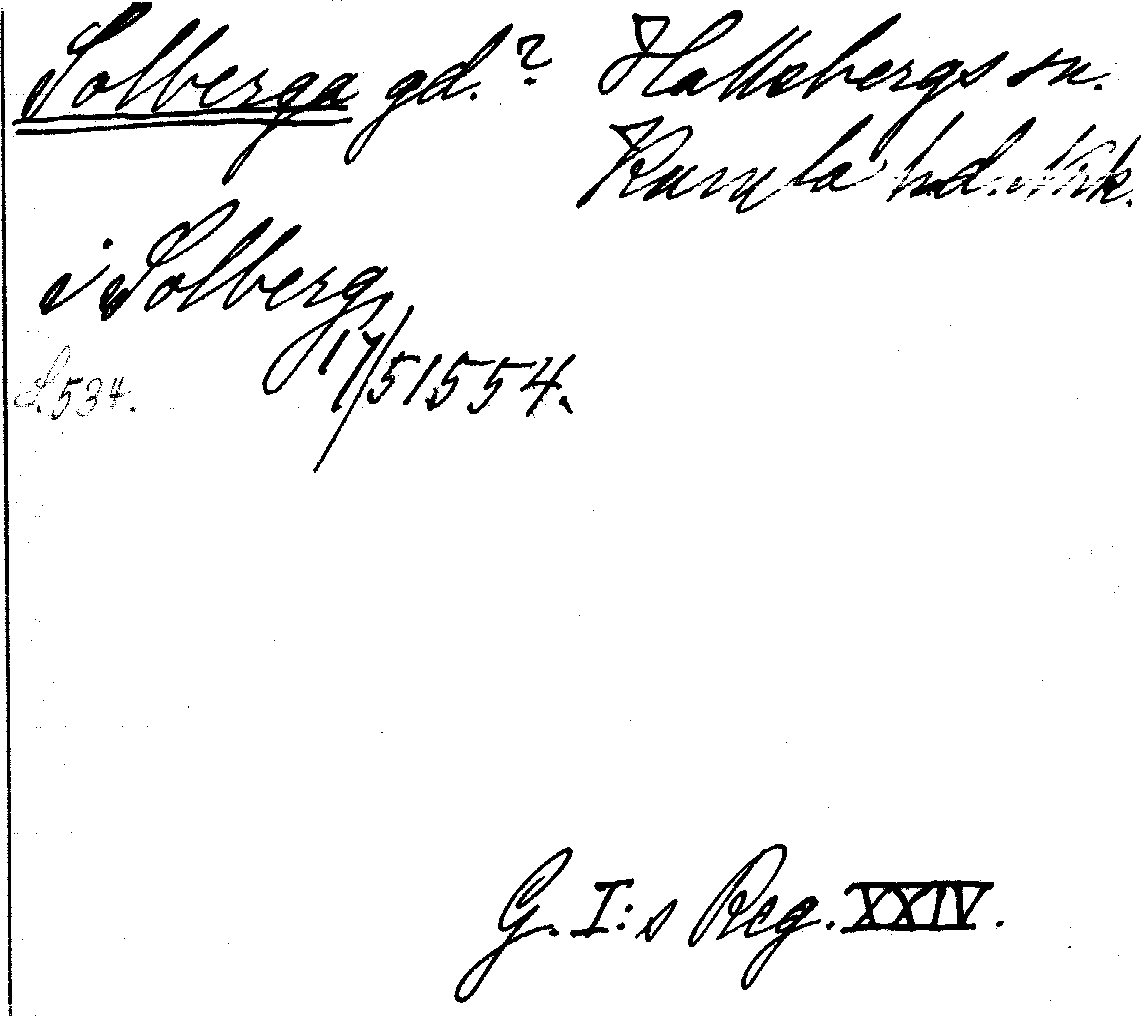 Solberga gd.? Hallsbergs sn.
Kumla hd. Nrk.
i Solberg
17/5 1554.
S. 534.
G. I:s Reg. XXIV.